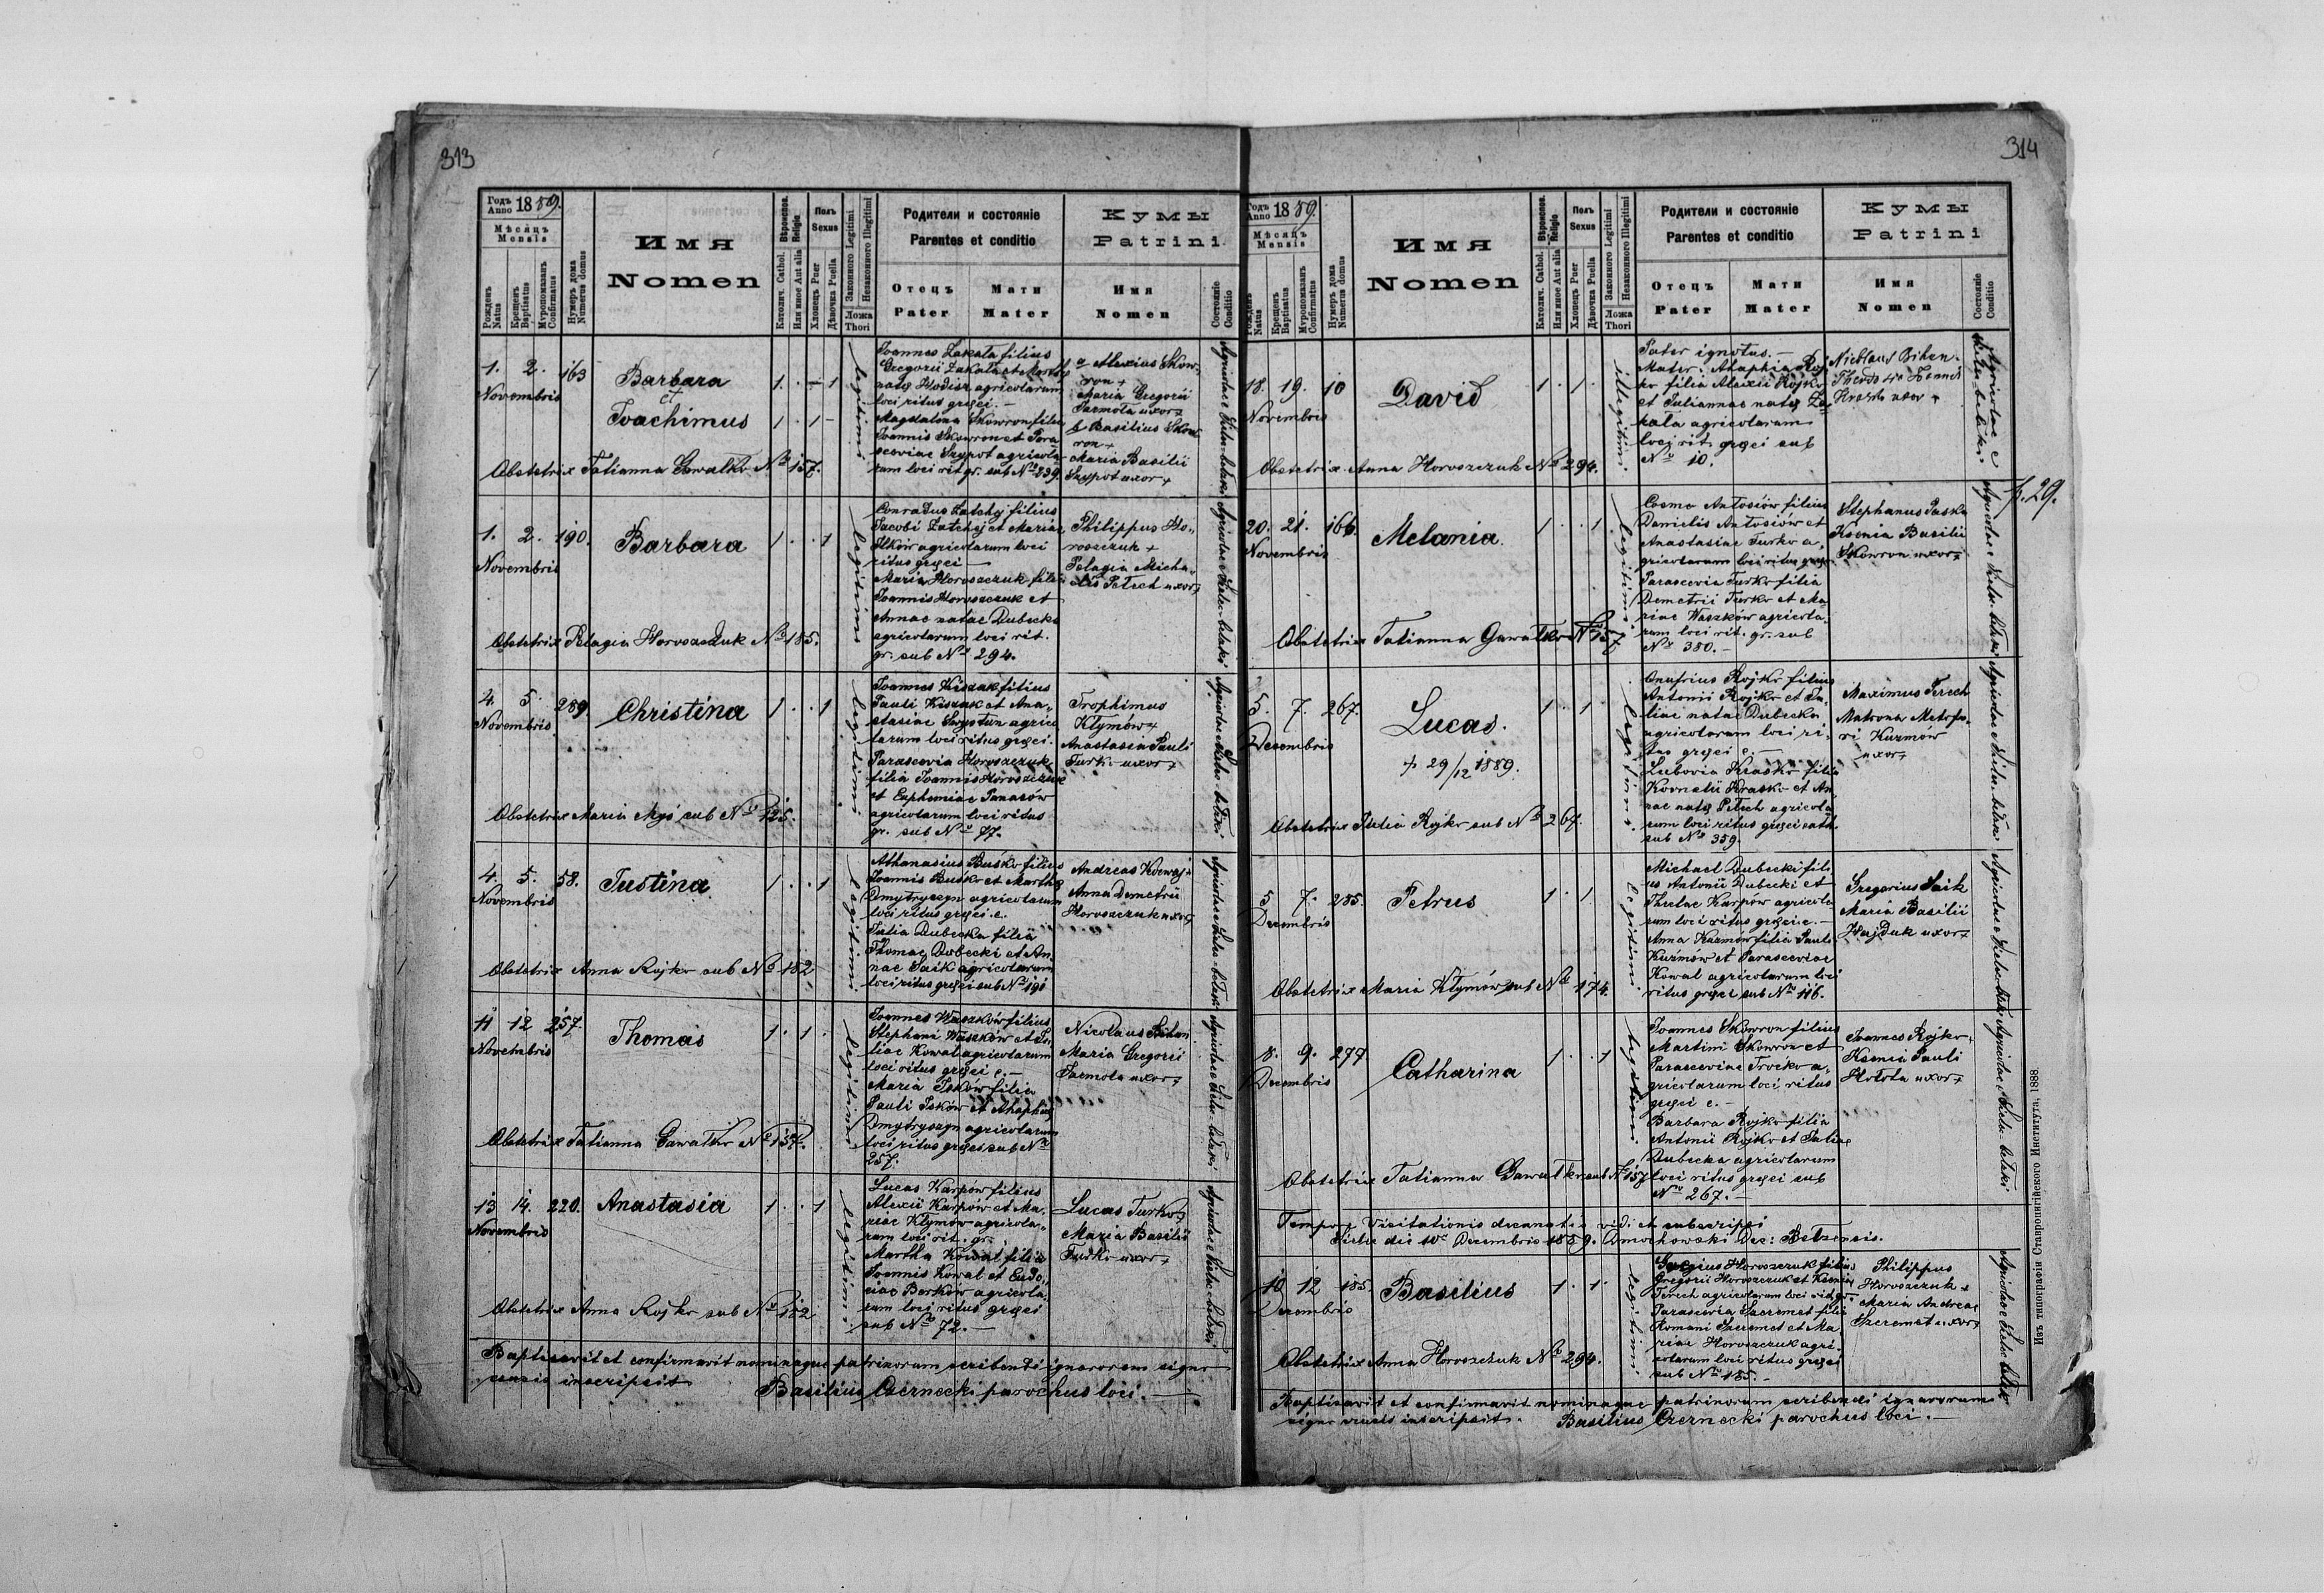 313
Годъ Anno 1889.
Мѣсяць Mensis
Рожденъ Natus
Крещенъ Baptisatus
Муропомазанъ Confirmatus
Нумеръ дома Numerus domus
Имя
Nomen
Вѣроиспов. Religio
Католич. Cathol.
Или иное Aut alia
Полъ Sexus
Хлопецъ Puer
Дѣвочка Puella
Законного Legitimi
Незаконного Illegitimi
Ложа Thori
Родители и состояніе
Parentes et conditio
Отець
Pater
Мати
Mater
Кумы
Patrini
Имя
Nomen
Состояніе
Conditio
1. 2. 163
Novembris
Barbara
et
Joachimus
1 . – 1
1 . 1 –
legitimi
Joannes Zakała filius
Gregorii Zakała et Martha
natę Hodisz agricolarum
loci ritus gręci. –
Magdalena Skowron filia
Joannis Skowron et Para
sceviae Szypot agricola
rum loci rit. gr. sub No 239.
a Alexius Skow
ron +
Maria Gregorii
Jarmoła uxor +
b Basilius Skow
ron +
Maria Basilii
Szypot uxor +
Obstetrix Tatianna Gawałko No 157.
1. 2. 190.
Novembris
Barbara
1 . . 1
legitimi
Conradus Łatchy filius
Jacobi Łatchy et Mariae
Ilków agricolarum loci
ritus gręci –
Maria Horoszczuk filia
Joannis Horoszczuk et
Annae natae Dubecka
agricolarum loci rit.
gr. sub No 294.
Philippus Ho
roszczuk +
Pelagia Micha
elis Petech uxor +
Obstetrix Pelagia Horoszczuk No 185.
4. 5. 289
Novembris
Christina
1 . . 1
legitimi
Joannes Kiszak filius
Pauli Kiszak et Ana
stasiae Swystun agrico
larum loci ritus gręci.
Parascevia Horoszczuk
filia Joannis Horoszczuk
et Euphemiae Panasów
agricolarum loci ritus
gr. sub No 77.
Trophimus
Kłymów +
Anastasia Pauli
Turko uxor +
Obstetrix Maria Myś sub No 125.
4. 5. 58.
Novembris
Justina
1 . . 1
legitimi
Athanasius Buśko filius
Joannis Buśko et Marthę
Dmytryszyn agricolarum
loci ritus gręci c.
Julia Dubecka filia
Thomae Dubecki et An
nae Saik agricolarum
loci ritus gręci sub No 191
Andreas
Anna Demetrii
Horoszczuk uxor +
Obstetrix Anna Rojko sub No 182
11 12 257
Novembris
Thomas
1 . 1 .
legitimi
Joannes Waszków filius
Stephani Waszków et Ju
liae Kowal agricolarum
loci ritus gręci c. –
Maria Jsków filia
Pauli Jsków et Ahaphię
Dmytryszyn agricolarum
loci ritus gręci sub No
257.
Nicolaus Bihun
Maria Gregorii
Jarmoła uxor +
Obstetrix Tatianna Gawałko No 157.
13 14. 220.
Novembris
Anastasia
1 . . 1
legitimi
Lucas Karpów filius
Alexii Karpów et Ma
riae Kłymów agricola
rum loci rit. gr.
Martha Kowal filia
Joannis Kowal et Eudo
ciae Borków agricola
rum loci ritus gręci
sub No 72. –
Lucas Turko +
Maria Basilii
Turko uxor +
Obstetrix Anna Rojko sub No 182
Baptisavit et confirmavit nominaque patrinorum scribendi ignarorum signo
crucis inscripsit Basilius Czernecki parochus loci. –
314
Годъ Anno 1889.
Мѣсяць Mensis
Рожденъ Natus
Крещенъ Baptisatus
Муропомазанъ Confirmatus
Нумеръ дома Numerus domus
Имя
Nomen
Вѣроиспов. Religio
Католич. Cathol.
Или иное Aut alia
Полъ Sexus
Хлопецъ Puer
Дѣвочка Puella
Законного Legitimi
Незаконного Illegitimi
Ложа Thori
Родители и состояніе
Parentes et conditio
Отець
Pater
Мати
Mater
Кумы
Patrini
Имя
Nomen
Состояніе
Conditio
18. 19. 10
Novembris
David
1 . 1 .
illegitimi
Pater ignotus. –
Mater: Ahaphia Roj
ko filia Alexii Rojko
et Juliannae natę Za
kała agricolarum
loci rit. gręci sub
No 10.
Nicolaus Bihun
Krasko uxor +
Obstetrix Anna Horoszczuk No 294.
p. 29.
20. 21. 166.
Novembris
Melania.
1 . . 1
legitimi
Cosma Antosiów filius
Danielis Antosiów et
Anastasiae Turko a
gricolarum loci ritus gręci
Parascevia Turko filia
Demetrii Turko et Ma
riae Waszków agricola
rum loci rit. gr. sub
No 380. –
Stephanus Pasko
Ksenia Basilii
Skowron uxor +
Obstetrix Tatianna Gawałko No 157
5. 7. 267.
Decembris
Lucas.
+ 29/12 1889.
1 . 1 .
legitimi
Onufrius Rojko filius
Antonii Rojko et Ju
liae natae Dubecka
agricolarum loci ri
tus gręci c. –
Lubovia Krasko filia
Kornelii Krasko et An
nae natę Petech agricola
rum loci ritus gręci cath.
sub No 359.
Maximus Terech
Matrona Metrofa
ni Kuzmów
uxor +
Obstetrix Julia Rojko sub No 267.
5. 7. 285.
Decembris
Petrus
1 . 1
legitimi
Michael Dubecki fili
us Antonii Dubecki et
Theclae Karpów agricola
rum loci ritus gręci c. –
Anna Kuzmów filia Pauli
Kuzmów et Parasceviae
Kowal agricolarum loci
ritus gręci sub No 116.
Gregorius Saik
Maria Basilii
Hajduk uxor +
Obstetrix Maria Kłymów sub No 174.
8. 9. 277
Decembris
Catharina
1 . . 1
legitimi
Joannes Skowron filius
Martini Skowron et
Parasceviae Troćko a
gricolarum loci ritus
gręci c. –
Barbara Rojko filia
Antonii Rojko et Juliae
Dubecka agricolarum
loci ritus gręci sub
No 267. –
Joannes Rojko
Ksenia Pauli
Hołota uxor +
Obstetrix Tatianna Gawałko sub No 157
Tempore Visitationis decanalis vidi et subscripsi
die 10a Decembris 1889. Dmochowski Dec: Belzensis.
10 12 185.
Decembris
Basilius
1 . 1
legitimi
Sergius Horoszczuk filius
Gregorii Horoszczuk et Kseniae
Terech agricolarum loci rit. gr.
Parascevia Szeremet filia
Romani Szeremet et Ma
riae Horoszczuk agri
colarum loci ritus gręci
sub No 185. –
Philippus
Horoszczuk +
Maria Andreae
Szeremet uxor +
Obstetrix Anna Horoszczuk No 294.
Baptisavit et confirmavit nominaque patrinorum scribendi ignarorum
signo crucis inscripsit. Basilius Czernecki parochus loci. –
Изъ типографіи Ставропигійского Института, 1888.